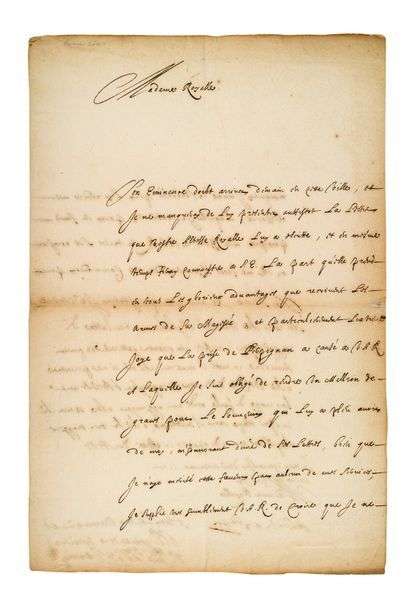 Madame Royalle
Son Eminence doibt arriver demain en cette Ville, et
Je ne manqueray de luy presenter aussytost La Lettre
que Vostre Altesse Royalle luy a escritte, et en mesme
temps feray connoistre a S.E. La part qu'elle prend
en tous Les glorieux advantages que reçoivent Les
armes de Sa Majesté, et particulierement
Joye que La prise de Perpignan a causé a V.A.R.
et Laquelle Je suis obligé de rendre Un Million de
graces pour Le souvenir qu'il Luy a pleu avoir
de moy, m'honnorant d'une de ses Lettres, bien que
Je n'aye merité cette faveur par aucun de mes services,
Je supplie tres humblement V.A.R. de croire que Je ne